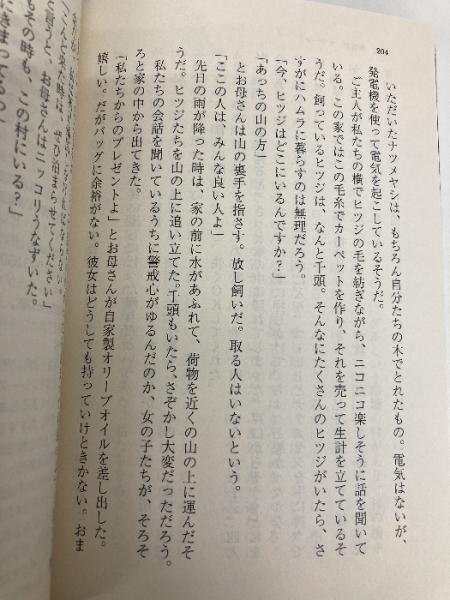 204
いただいたナツメヤシは、もちろん自分たちの木でとれたもの。電気はないが、
発電機を使って電気を起こしているそうだ。
ご主人が私たちの横でヒツジの毛を紡ぎながら、ニコニコ楽しそうに話を聞いて
いる。この家ではこの毛糸でカーペットを作り、それを売って生計を立てているそ
うだ。飼っているヒツジは、なんと千頭。そんなにたくさんのヒツジがいたら、さ
すがにハムラで暮らすのは無理だろう。
「今、ヒツジはどこにいるんですか？」
「あっちの山の方」
とお母さんは山の裏手を指さす。放し飼いだ。取る人はいないという。
「ここの人は、みんな良い人よ」
先日の雨が降った時は、家の前に水があふれて、荷物を近くの山の上に運んだそ
うだ。ヒツジたちも山の上に追い立てた。千頭もいたら、さぞかし大変だっただろう。
私たちの会話を聞いているうちに警戒心がゆるんだのか、女の子たちが、そろそ
ろと家の中から出てきた。
「私たちからのプレゼントよ」とお母さんが自家製オリーブオイルを差し出した。
嬉しい。だがバッグに余裕がない。彼女はどうしても持っていけときかない。おま
「こんど来た時は、ぜひ泊まらせてください」
と言うと、お母さんはニッコリうなずいた。
もその時も、この村にいる？」
にきまってるっ